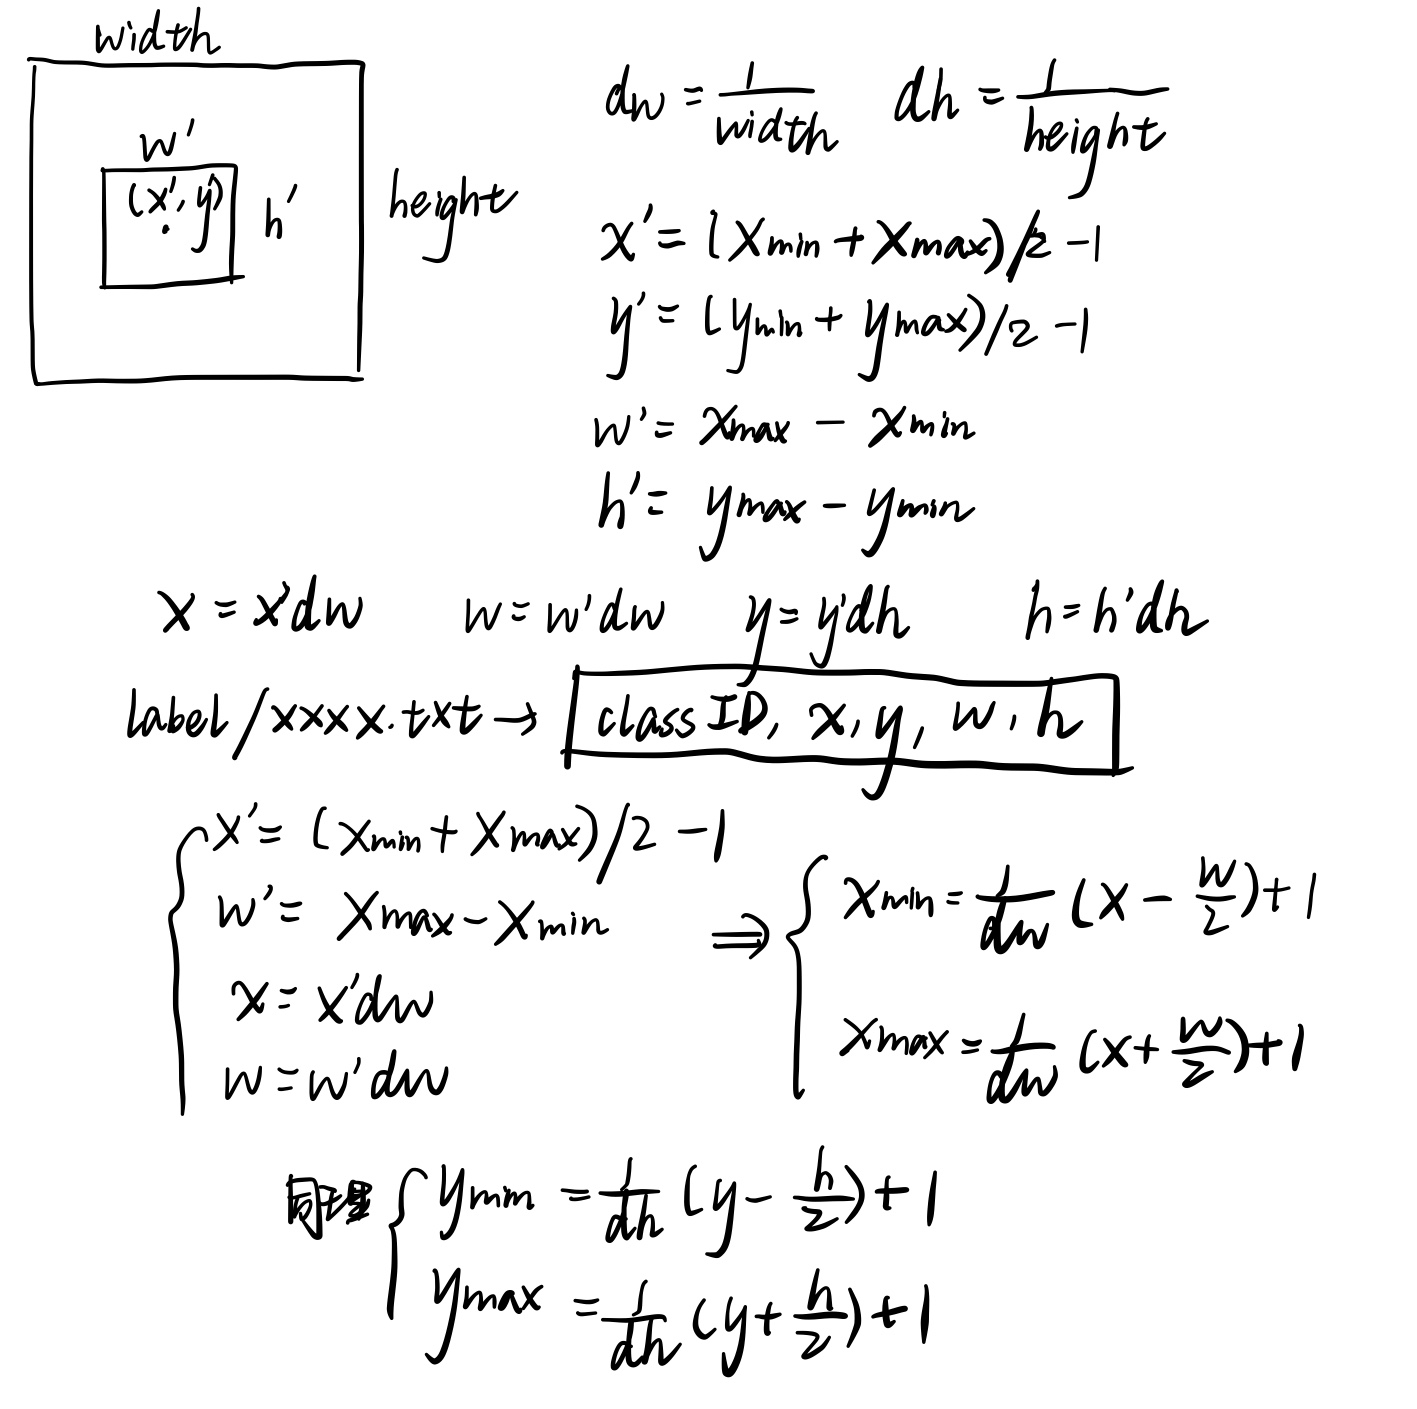 width
w'
(x', y')
h'
height
dw = 1/width   dh = 1/height
x' = (xmin + xmax)/2 - 1
y' = (ymin + ymax)/2 - 1
w' = xmax - xmin
h' = ymax - ymin
x = x'dw   w = w'dw   y = y'dh   h = h'dh
label/xxxx.txt → class ID, x, y, w, h
x' = (xmin + xmax)/2 - 1
w' = xmax - xmin
x = x'dw
w = w'dw
⇒
xmin = 1/dw (x - w/2) + 1
xmax = 1/dw (x + w/2) + 1
同理 ymin = 1/dh (y - h/2) + 1
ymax = 1/dh (y + h/2) + 1